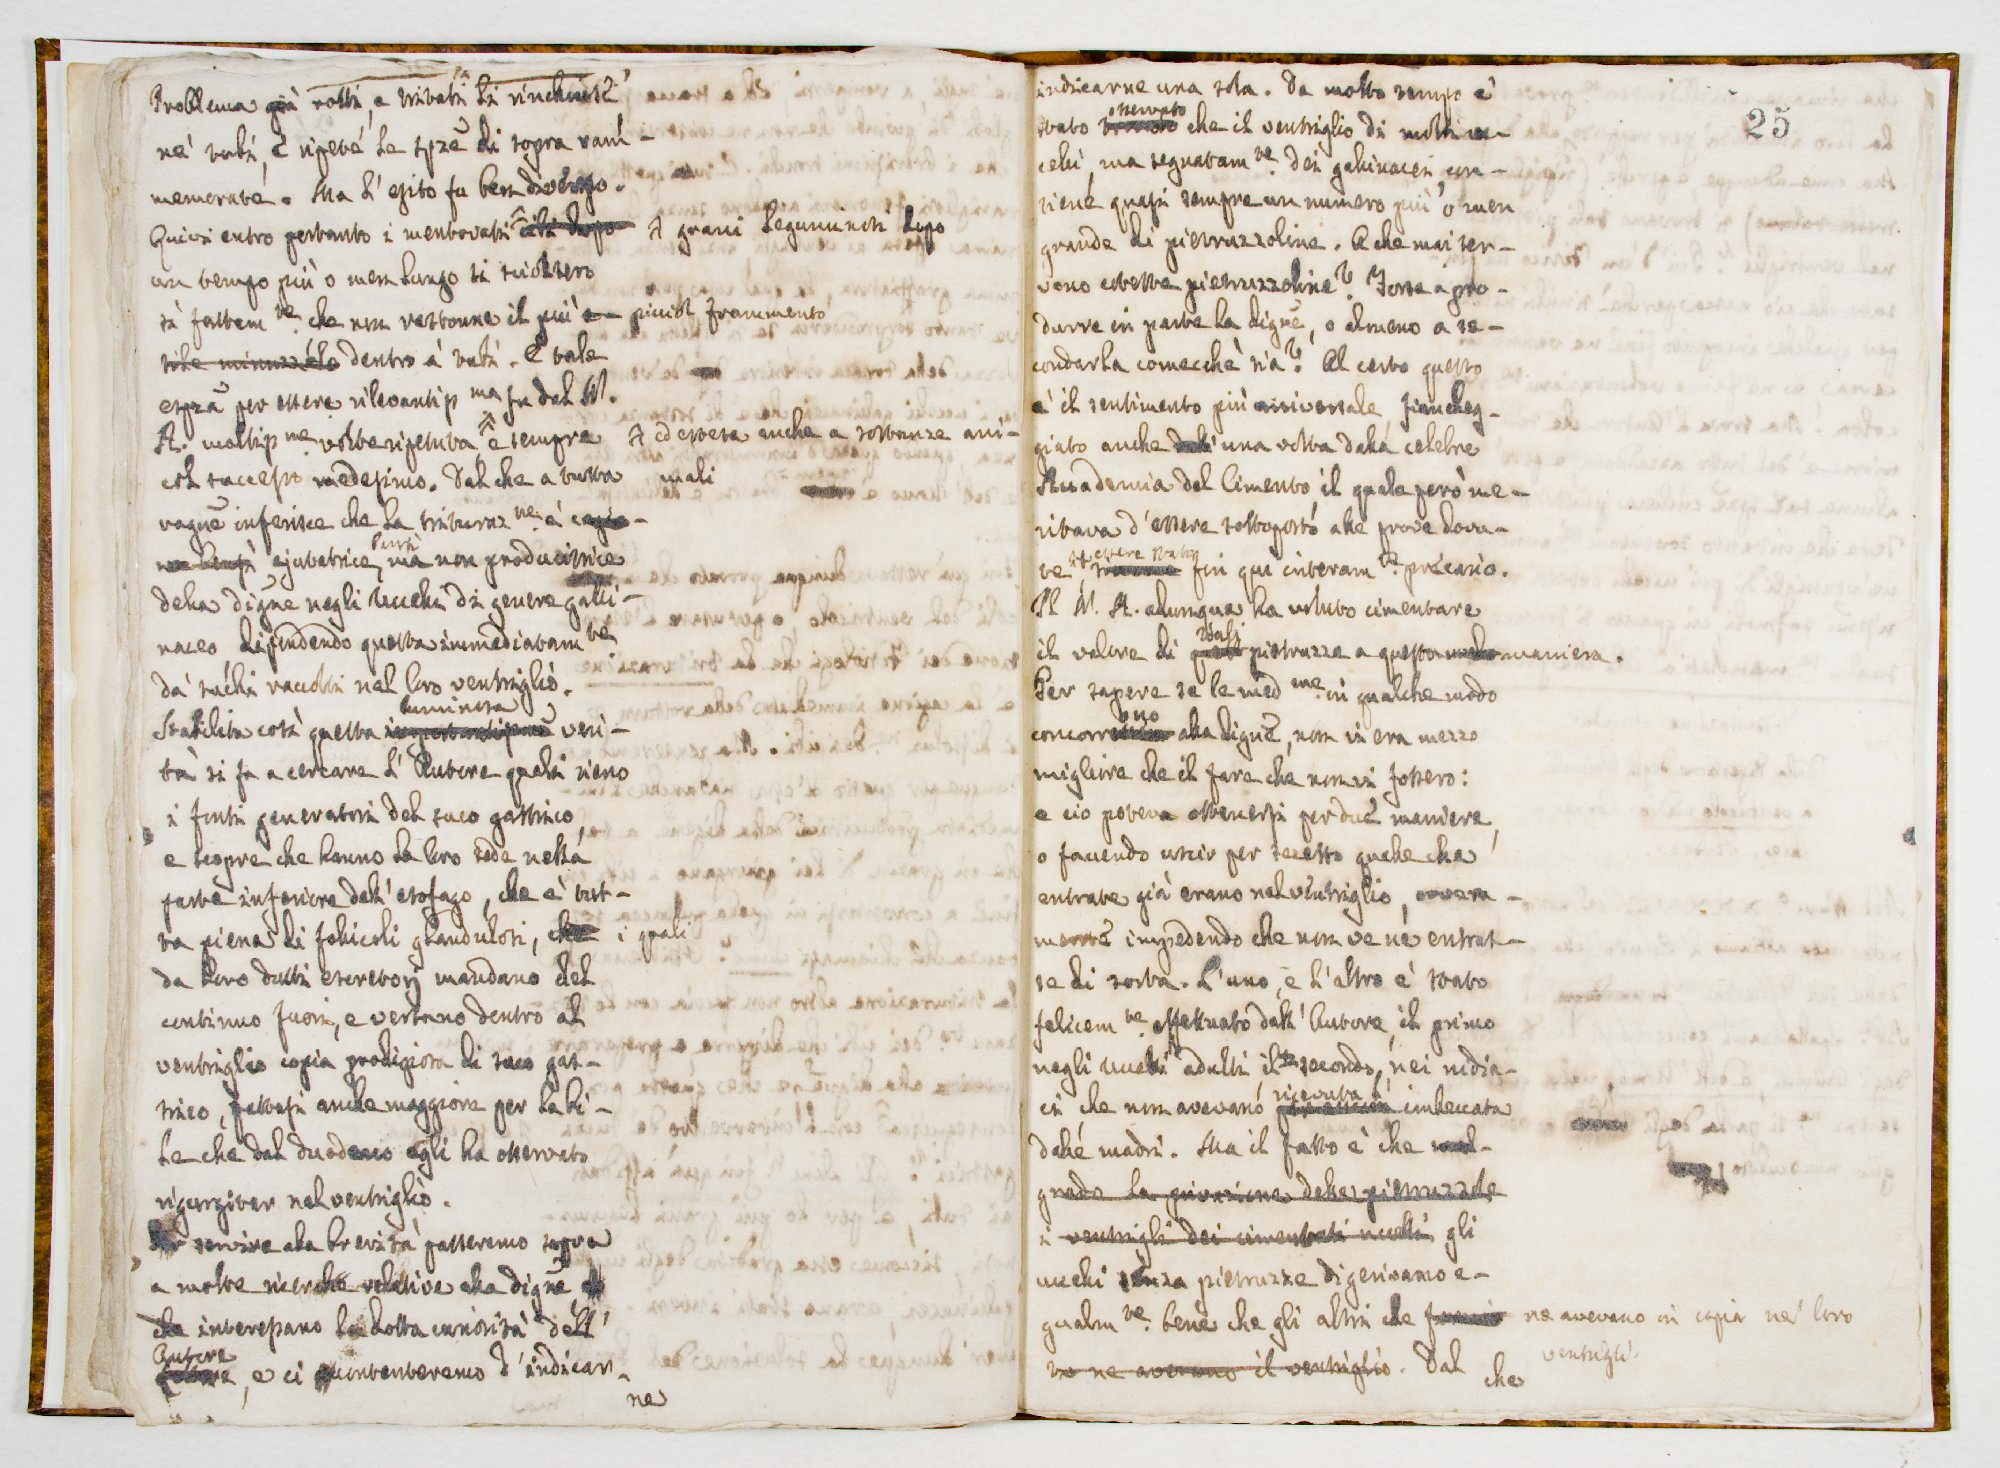 Problema già rotti, e tritati li rinchiuse
ne' tubi, e ripeté le spze di sopra ram-
memorate. Ma l'esito fu ben diverso.
Quivi entro pertanto i mentovati cibi dopo
A grani leguminosi dopo
un tempo più o men lungo si sciolsero
sì fattam.te che non restonne il più
piccol frammento
dentro a' tubi. E tale
espza per essere rilevantissma fu dal N.
A. moltissme volte ripetuta, e sempre
A ed estesa anche a sostanze ani-
mali
col successo medesimo. Dal che a tutta
ragne inferisce che la trituraz.ne è
ejutatrice, ma non producitrice
della digne negli Uccelli di genere galli-
naceo dipendendo questa immediatam.te
da' succhi raccolti nel loro ventriglio.
luminosa
Stabilita così questa veri-
tà si fa a cercare l'Autore quali sieno
i fonti generatori del suco gastrico,
e scopre che hanno la loro sede nella
parte inferiore dell'esofago, che è tut-
ta piena di follicoli glandulosi, che i quali
da loro dutti escretorj mandano del
continuo fuori, e versano dentro al
ventriglio copia prodigiosa di suco gas-
trico, fattasi anche maggiore per la bi-
le che dal duodeno egli ha osservato
rigurgitar nel ventriglio.
Per servire alla brevità passeremo sopra
a molte ricerche relative alla digne
che interessano la dotta curiosità dell'
Autore
, e ci contenteremo d'indicar-
ne
25
indicarne una sola. Da molto tempo è
osservato
stato che il ventriglio di molti uc-
celli, ma segnatam.te dei gallinacei con-
tiene quasi sempre un numero più o men
grande di pietruzzoline. A che mai ser-
vono codeste pietruzzoline? Forse a pro-
durre in parte la digne, o almeno a se-
condarla comecché sia? Al certo questo
è il sentimento più universale, fiancheg-
giato anche una volta dalla celebre
Accademia del Cimento il quale però me-
ritava d'essere sottoposto alle prove dovu-
te, fin qui interam.te precario.
Il N. A. adunque ha voluto cimentare
il valore di tali pietruzze a questa maniera.
Per sapere se le med.me in qualche modo
concorrono alla digne, non vi era mezzo
migliore che il fare che non vi fossero:
e ciò poteva ottenersi per due maniere,
o facendo uscir per secesso quelle che
entrate già erano nel ventriglio, overa-
mente impedendo che non ve ne entras-
se di sorta. L'uno, e l'altro è stato
felicem.te effettuato dall'Autore, il primo
negli Uccelli adulti il secondo, nei nidia-
ricevuta
ci che non avevano imbeccata
dalle madri. Ma il fatto è che mal-
grado la privazione delle pietruzzole
i ventrigli dei cimentati uccelli gli
uccelli senza pietruzze digerivano e-
gualm.te bene che gli altri che ne avevano in copia ne' loro
ventrigli.
no ne avevano il ventriglio. Dal
che